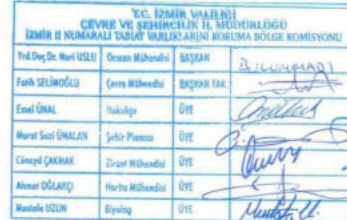 T.C. İZMİR VALİLİĞİ
ÇEVRE VE ŞEHİRCİLİK İL MÜDÜRLÜĞÜ
İZMİR II NUMARALI TABİAT VARLIKLARINI KORUMA BÖLGE KOMİSYONU
Yrd.Doç.Dr. Nuri USLU Orman Mühendisi BAŞKAN BULUNMADI
Fatih SELİMOĞLU Çevre Mühendisi BAŞKAN YAR.
Emel ÜNAL Hukukçu ÜYE
Murat Suzi ÜNALAN Şehir Plancısı ÜYE
Cüneyd ÇAKMAK Ziraat Mühendisi ÜYE
Ahmet OĞLAKÇI Harita Mühendisi ÜYE
Mustafa UZUN Biyolog ÜYE